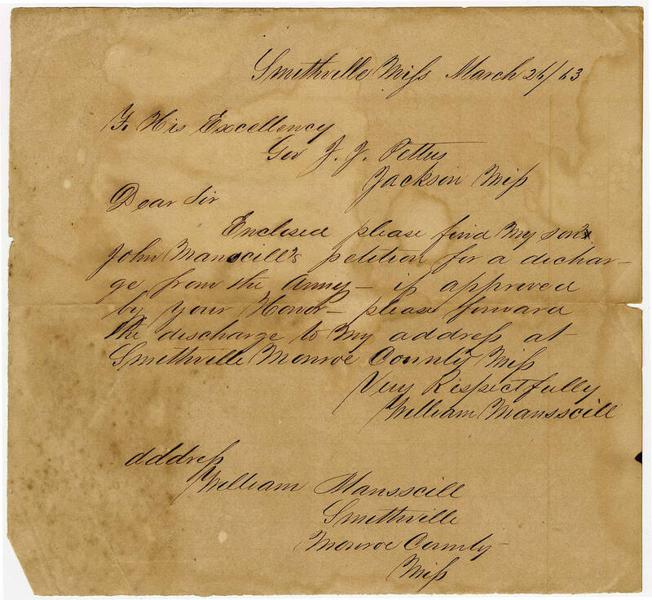 Smithville Miss March 26/63
To His Excellency
Gov J. J. Pettus
Jackson Miss
Dear Sir
Enclosed please find my son's
John Manscill's petition for a dischar-
ge from the Army - if approved
by your Honor - please forward
the discharge to my address at
Smithville Monroe County Miss
Very Respectfully
William Mansscill
address
William Mansscill
Smithville
Monroe County
Miss